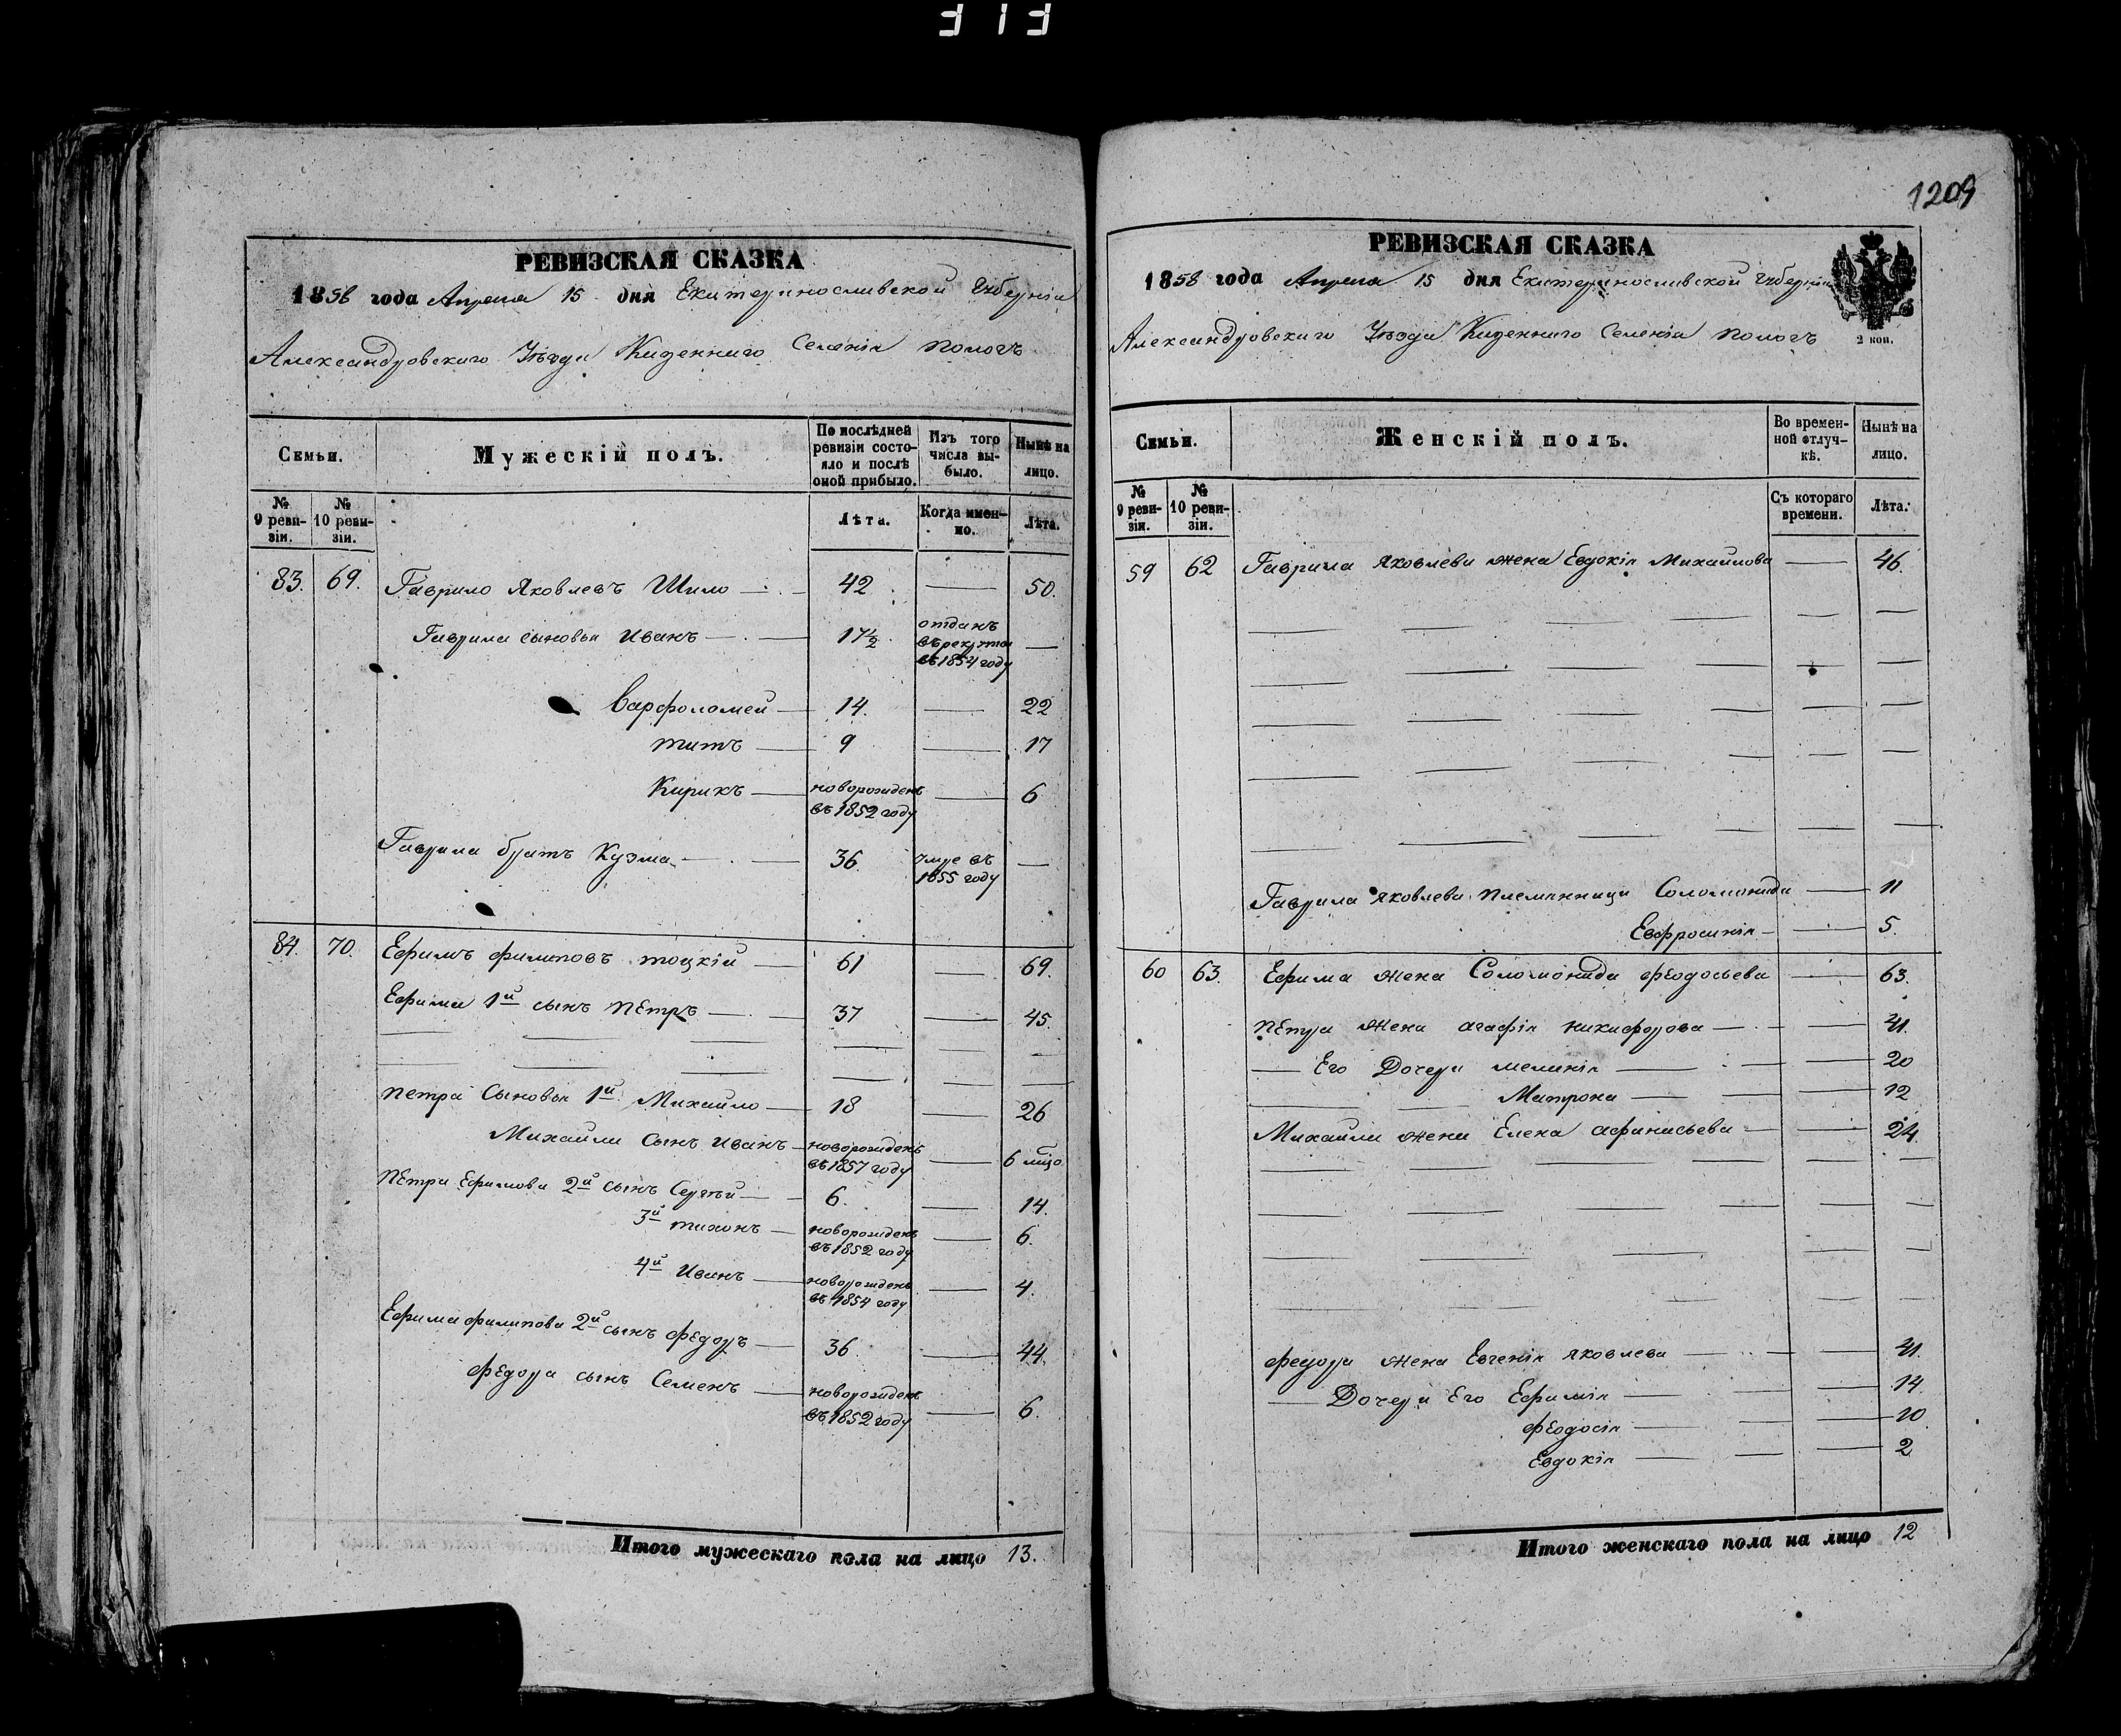 313
РЕВИЗСКАЯ СКАЗКА
1858 года Апреля 15 дня Екатеринославской Губерніи
Александровскаго Уѣзда Казеннаго Селенія Пологъ
Семьи.
Мужескій полъ.
По послѣдней ревизіи состояло и послѣ оной прибыло.
Изъ того числа выбыло.
Нынѣ на лицо.
№ 9 ревизіи.
№ 10 ревизіи.
Лѣта.
Когда именно.
Лѣта.
83. 69. Гаврило Яковлевъ Шило 42 50.
Гаврила сыновья Иванъ 17½ отданъ въ рекруты въ 1854 году
Варфоломей 14. 22
Титъ 9 17
Кирикъ новорожденъ въ 1852 году 6
Гаврила братъ Кузма 36 умре въ 1855 году
84. 70. Ефимъ Филиповъ Тоцкій 61 69.
Ефима 1й сынъ Петръ 37 45.
Петра Сыновья 1й Михайло 18 26
Михайли Сынъ Иванъ новорожденъ въ 1857 году 6 мцо
Петра Ефимова 2й сынъ Сергѣй 6. 14.
3й Тихонъ новорожденъ въ 1852 году 6.
4й Иванъ новорожденъ въ 1854 году 4.
Ефима Филипова 2й сынъ Федоръ 36. 44.
Федора сынъ Семенъ новорожденъ въ 1852 году 6.
Итого мужескаго пола на лицо 13.
1209
РЕВИЗСКАЯ СКАЗКА
1858 года Апреля 15 дня Екатеринославской Губерніи
Александровскаго Уѣзда Казеннаго Селенія Пологъ
2 коп.
Семьи.
Женскій полъ.
Во временной отлучкѣ.
Нынѣ на лицо.
№ 9 ревизіи.
№ 10 ревизіи.
Съ котораго времени.
Лѣта.
59 62 Гаврила Яковлева жена Евдокія Михайлова 46.
Гаврила Яковлева племянница Соломонида 11
Евфросинія 5.
60 63. Ефима жена Соломонида Феодосьева 63.
Петра жена Агафія Никифорова 41.
Его Дочери Меланія 20
Матрона 12
Михайли жена Елена Афанасьева 24.
Федора жена Евгенія Яковлева 41.
Дочери Его Ефимія 14
Феодосія 10
Евдокія 2
Итого женскаго пола на лицо 12